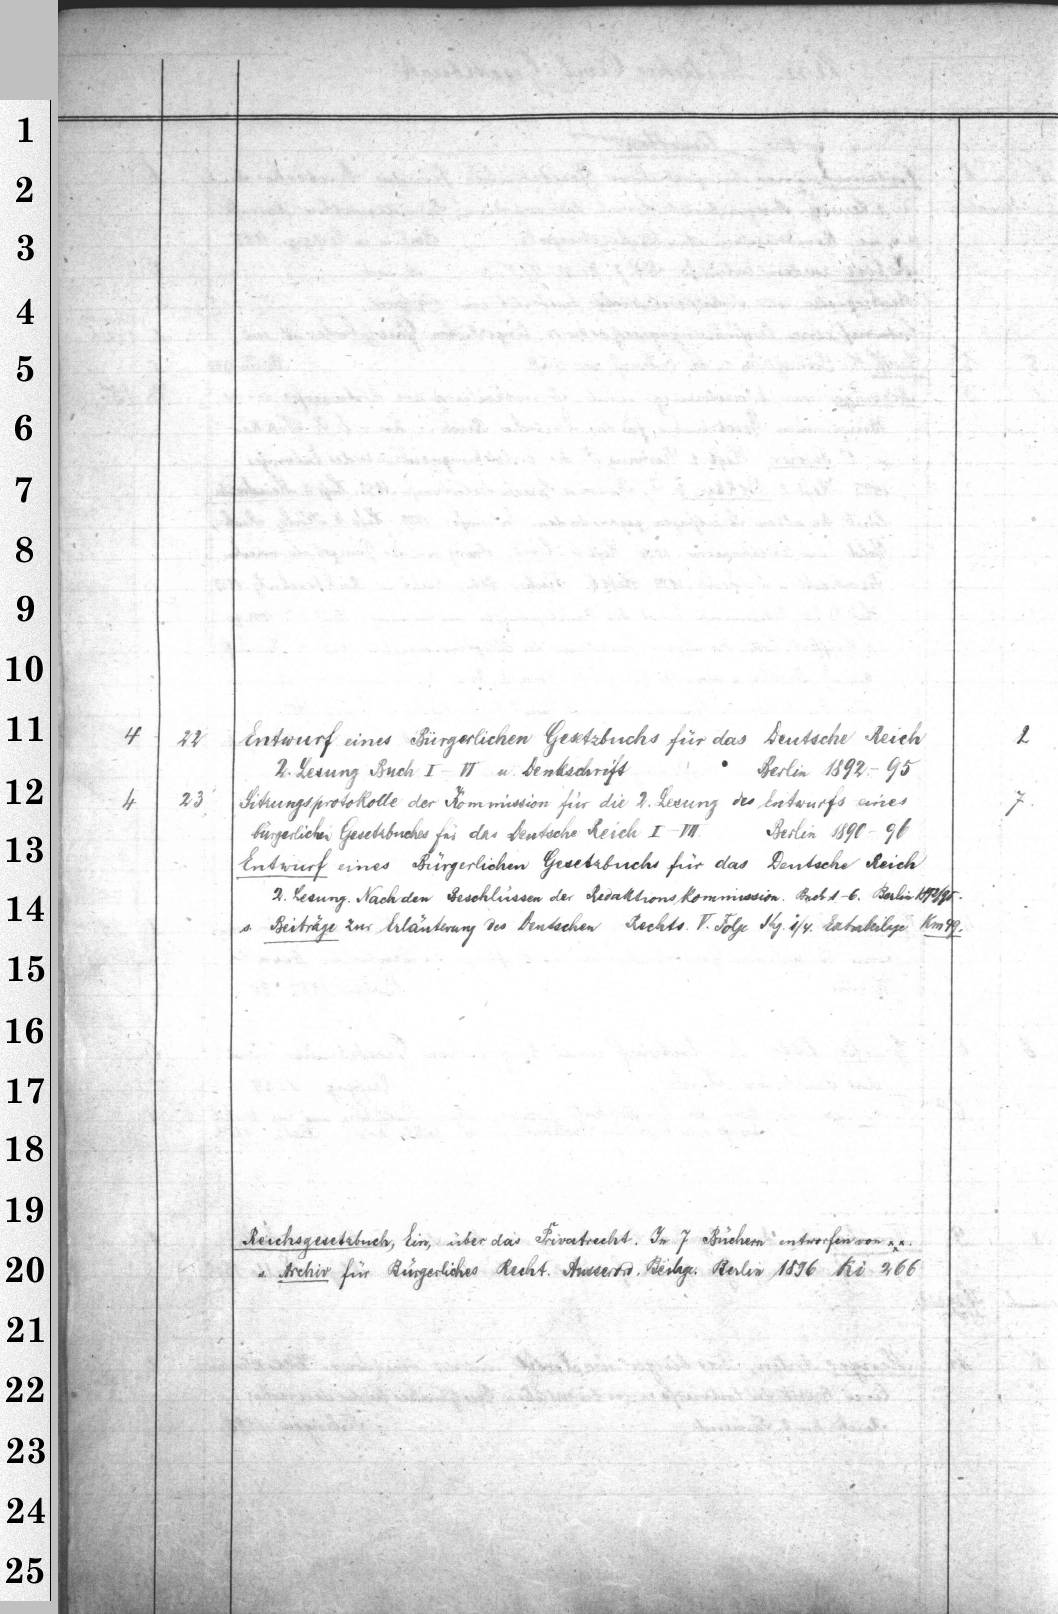 1
2
3
4
5
6
7
8
9
10
11
12
13
14
15
16
17
18
19
20
21
22
23
24
25
4 22 Entwurf eines Bürgerlichen Gesetzbuchs für das Deutsche Reich 2
2. Lesung Buch I - VI u. Denkschrift Berlin 1892 - 95
4 23 Sitzungsprotokolle der Kommission für die 2. Lesung des Entwurfs eines 7.
bürgerlichen Gesetzbuches für das Deutsche Reich I - VII Berlin 1890 - 96
Entwurf eines Bürgerlichen Gesetzbuchs für das Deutsche Reich
2. Lesung. Nach den Beschlüssen der Redaktionskommission. Buch 1-6. Berlin 1892/95.
s. Beiträge zur Erläuterung des Deutschen Rechts. V. Folge Jhg. 1/4. Extrabeilage Km 49.
Reichsgesetzbuch, Ein, über das Privatrecht. In 7 Büchern entworfen von xxx.
s. Archiv für Bürgerliches Recht. Ausserord. Beilage. Berlin 1896 Ki 266